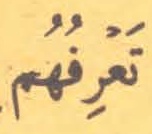 تَعْرِفُهُم